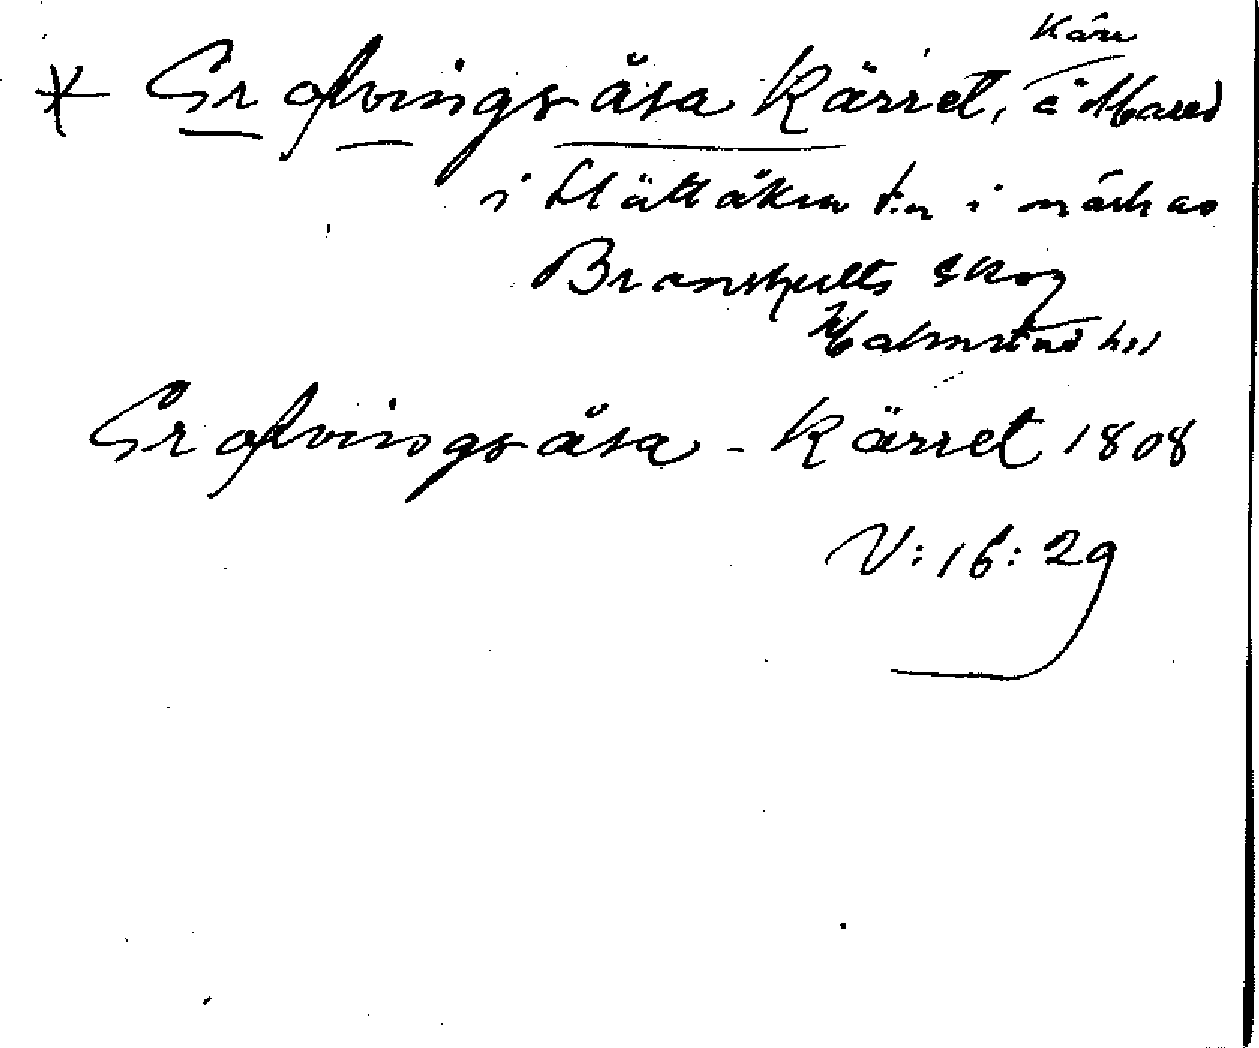 kärr
* Grafvingsåsa Kärret, å Mared
i Slättåkra s:n i närh av
Branshults skog
Halmstad hd
Grafvingsåsa - Kärret 1808
V: 16: 29